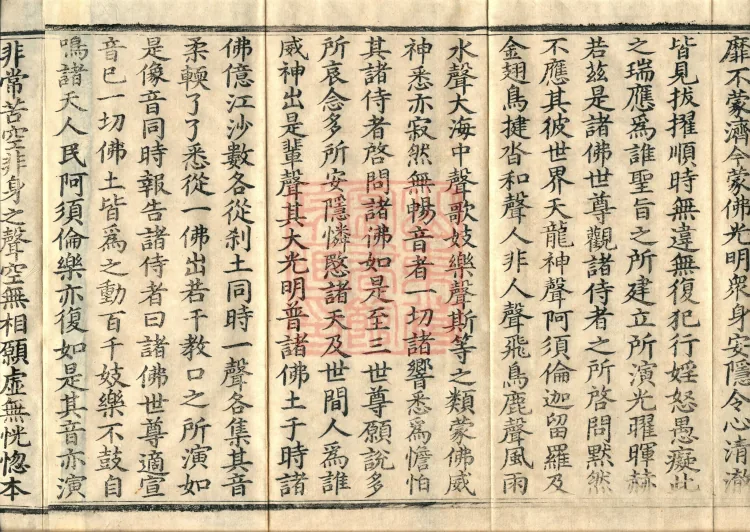 靡不蒙濟令蒙佛光明衆身安隱令心清澈
皆見拔擢順時無違無復犯行婬怒愚癡此
之瑞應爲誰聖旨之所建立所演光曜暉赫
若茲是諸佛世尊觀諸侍者之所啓問默然
不應其彼世界天龍神聲阿須倫迦留羅及
金翅鳥揵沓和聲人非人聲飛鳥鹿聲風雨
水聲大海中聲歌妓樂聲斯等之類蒙佛威
神悉亦寂然無暢音者一切諸響悉爲憺怕
其諸侍者啓問諸佛如是至三世尊願說多
所哀念多所安隱憐愍諸天及世間人爲誰
威神出是輩聲其大光明普諸佛土于時諸
佛億江沙數各從刹土同時一聲各集其音
柔輭了了悉從一佛出若干教口之所演如
是像音同時報告諸侍者曰諸佛世尊適宣
音已一切佛土皆爲之動百千妓樂不鼓自
鳴諸天人民阿須倫樂亦復如是其音亦演
非常苦空非身之聲空無相願虛無恍惚本